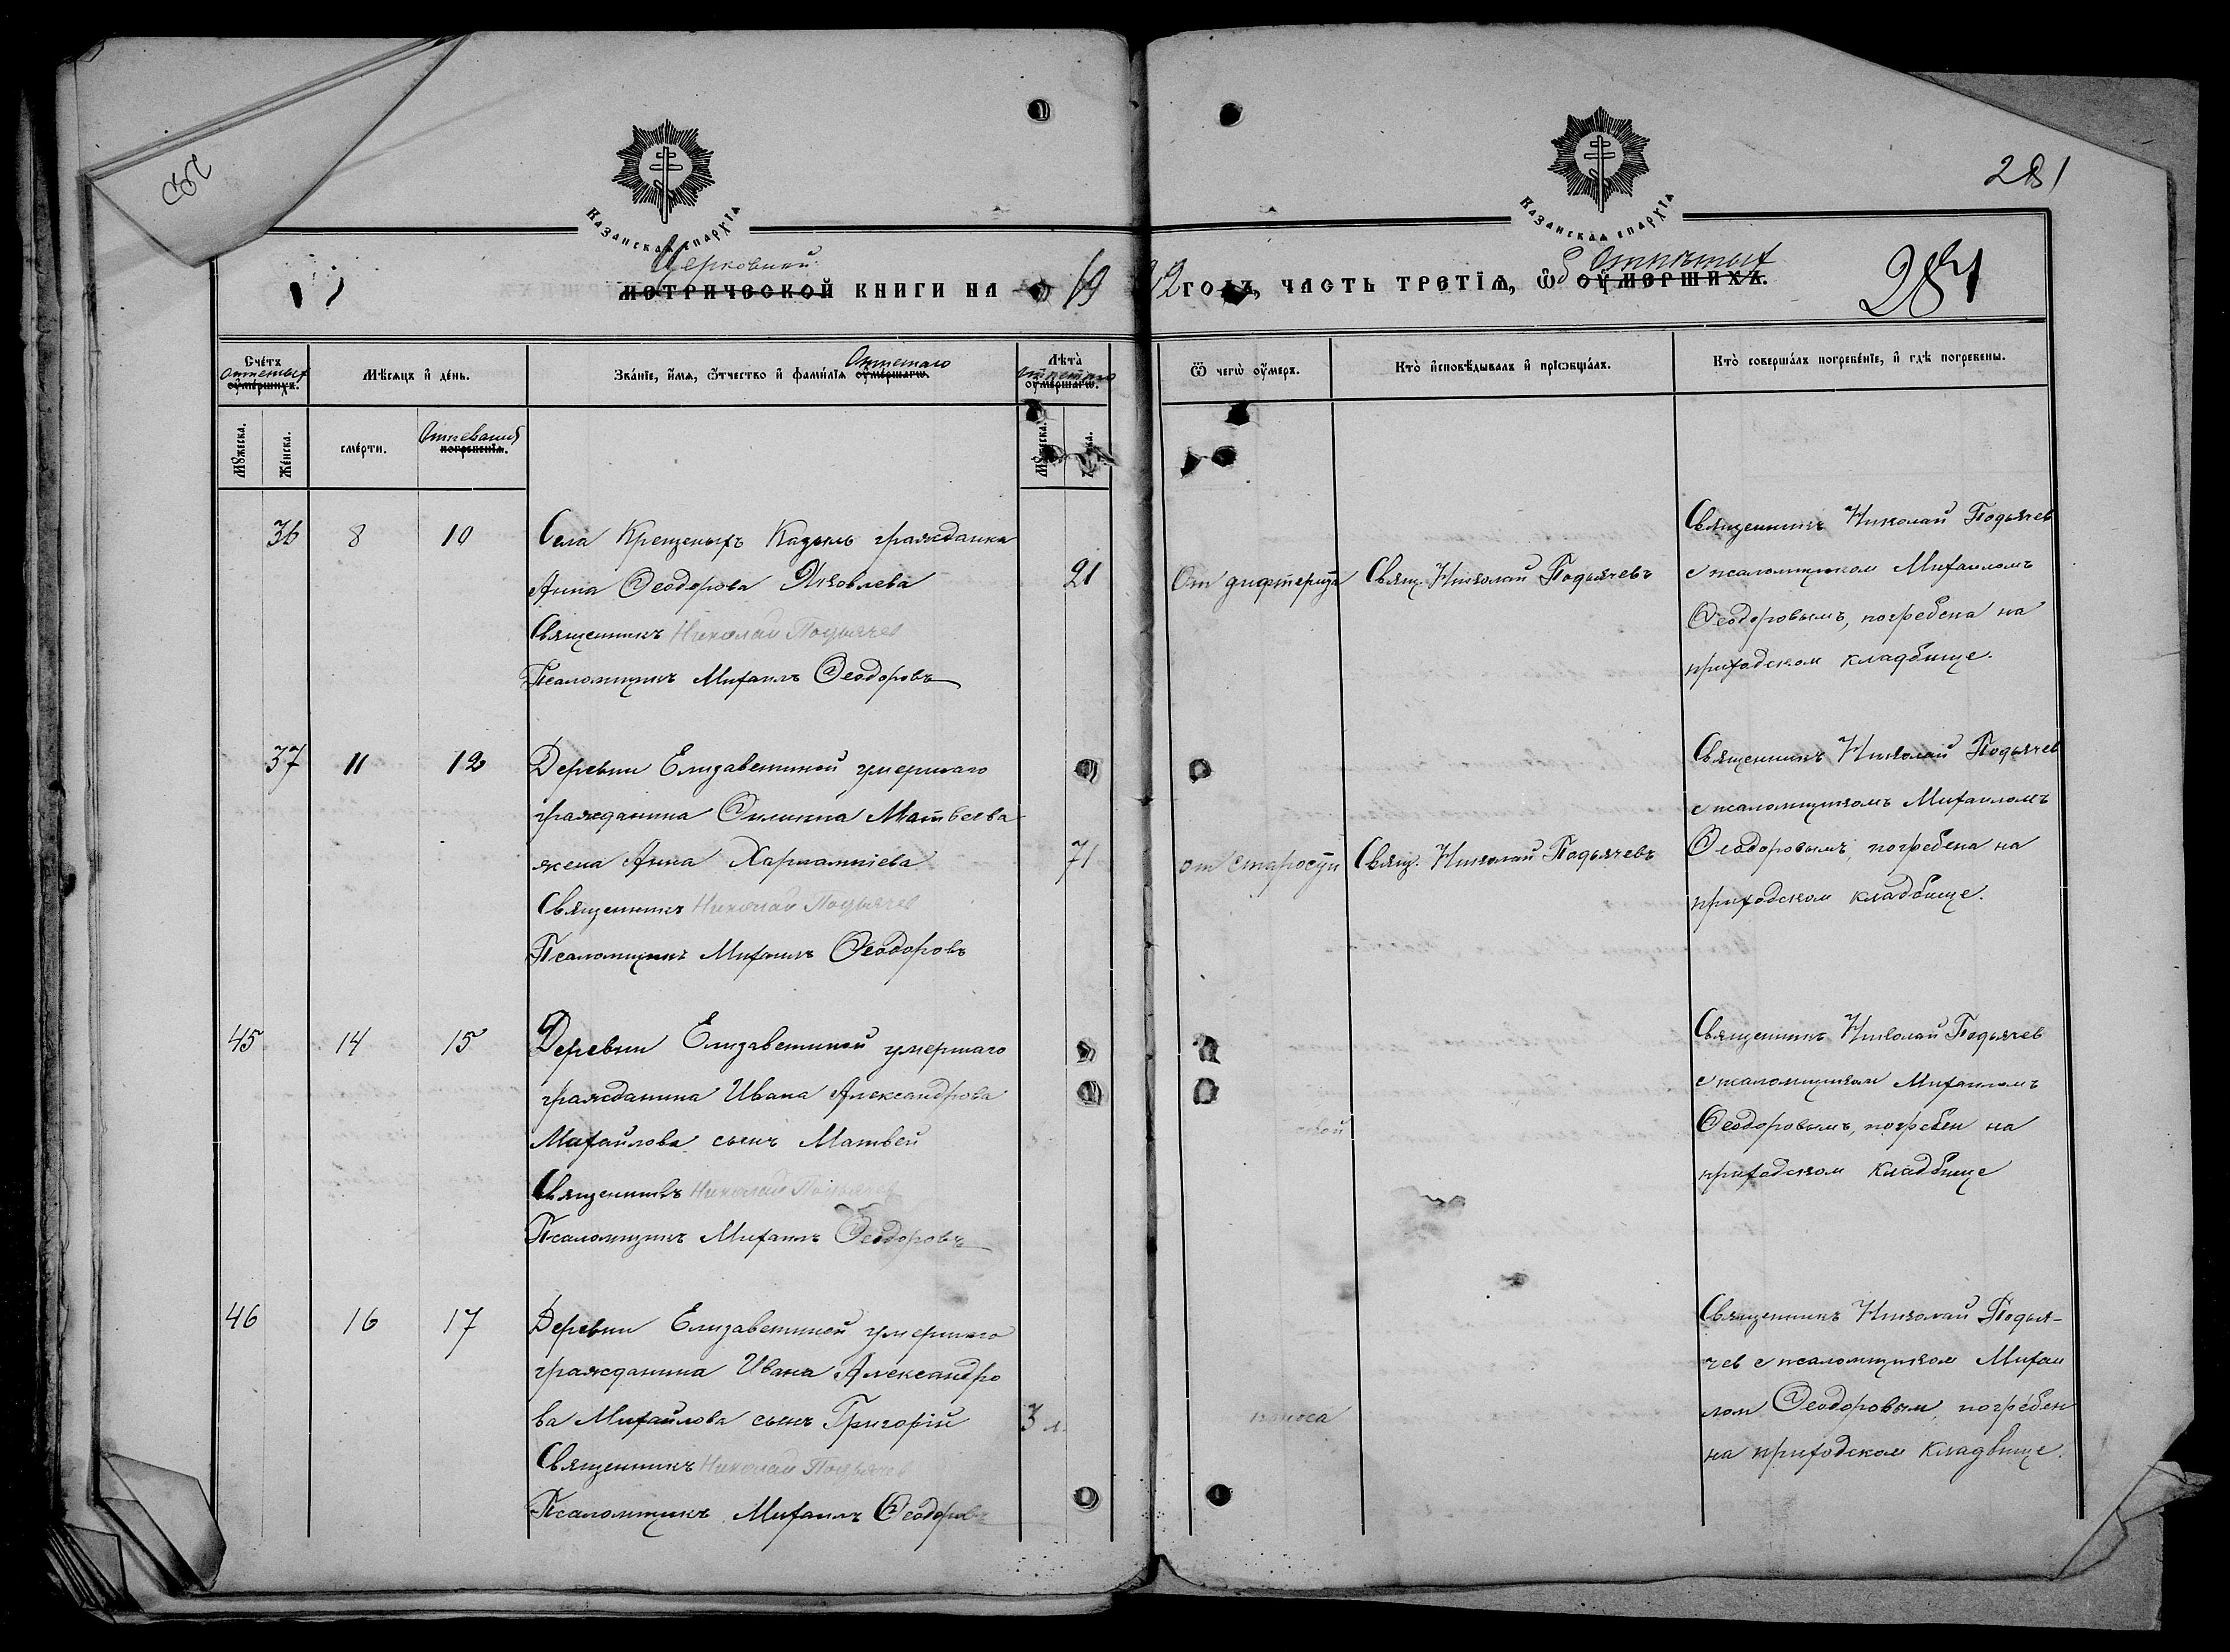 281
Казанская епархїа
Казанская епархїа
Церковной
метрической книги на 19
22 годъ, часть третїѧ, ѡ оумершихъ.
Отпетых
281
Счéтъ
Отпетых
оумершихъ.
Мѣсяцъ и день.
Званїе, имя, ѿчество и фамилїя оумершагѡ.
Отпетаго
Лѣта
Отпетаго
оумершагѡ.
Ѿ чегѡ оумеръ.
Кто исповѣдывалъ и прїѡбщалъ.
Кто совершалъ погребенїе, и гдѣ погребены.
Мужеска.
Женска.
смерти.
Отпевания
погребенїя.
Мужеска.
36 8 10
Села Крещеныхъ Казыль гражданка
Анна Ѳеодорова Яковлева
Священникъ Николай Подьячев
Псаломщикъ Михаилъ Ѳеодоровъ
21
От дифтерита
Свящ. Николай Подьячевъ
Священникъ Николай Подьячев
с псаломщиком Михаиломъ
Ѳеодоровымъ, погребена на
приходском кладбище.
37 11 12
Деревни Елизаветиной умершаго
гражданина Филиппа Матвеева
жена Анна Харлампiева
Священникъ Николай Подьячев
Псаломщикъ Михаилъ Ѳеодоровъ
71
от старости
Свящ. Николай Подьячевъ
Священникъ Николай Подьячев
с псаломщикомъ Михаиломъ
Ѳеодоровымъ, погребена на
приходском кладбище.
45 14 15
Деревни Елизаветиной умершаго
гражданина Ивана Александрова
Михайлова сынъ Матвей
Священникъ Николай Подьячев
Псаломщикъ Михаилъ Ѳеодоровъ
Священникъ Николай Подьячев
с псаломщиком Михаиломъ
Ѳеодоровымъ, погребен на
приходском кладбище
46 16 17
Деревни Елизаветиной умершаго
гражданина Ивана Александро
ва Михайлова сынъ Григорій
Священникъ Николай Подьячев
Псаломщикъ Михаилъ Ѳеодоровъ
3 л.
поноса
Священникъ Николай Подья-
чев с псаломщиком Михаи
лом Ѳеодоровым, погребен
на приходском кладбище.